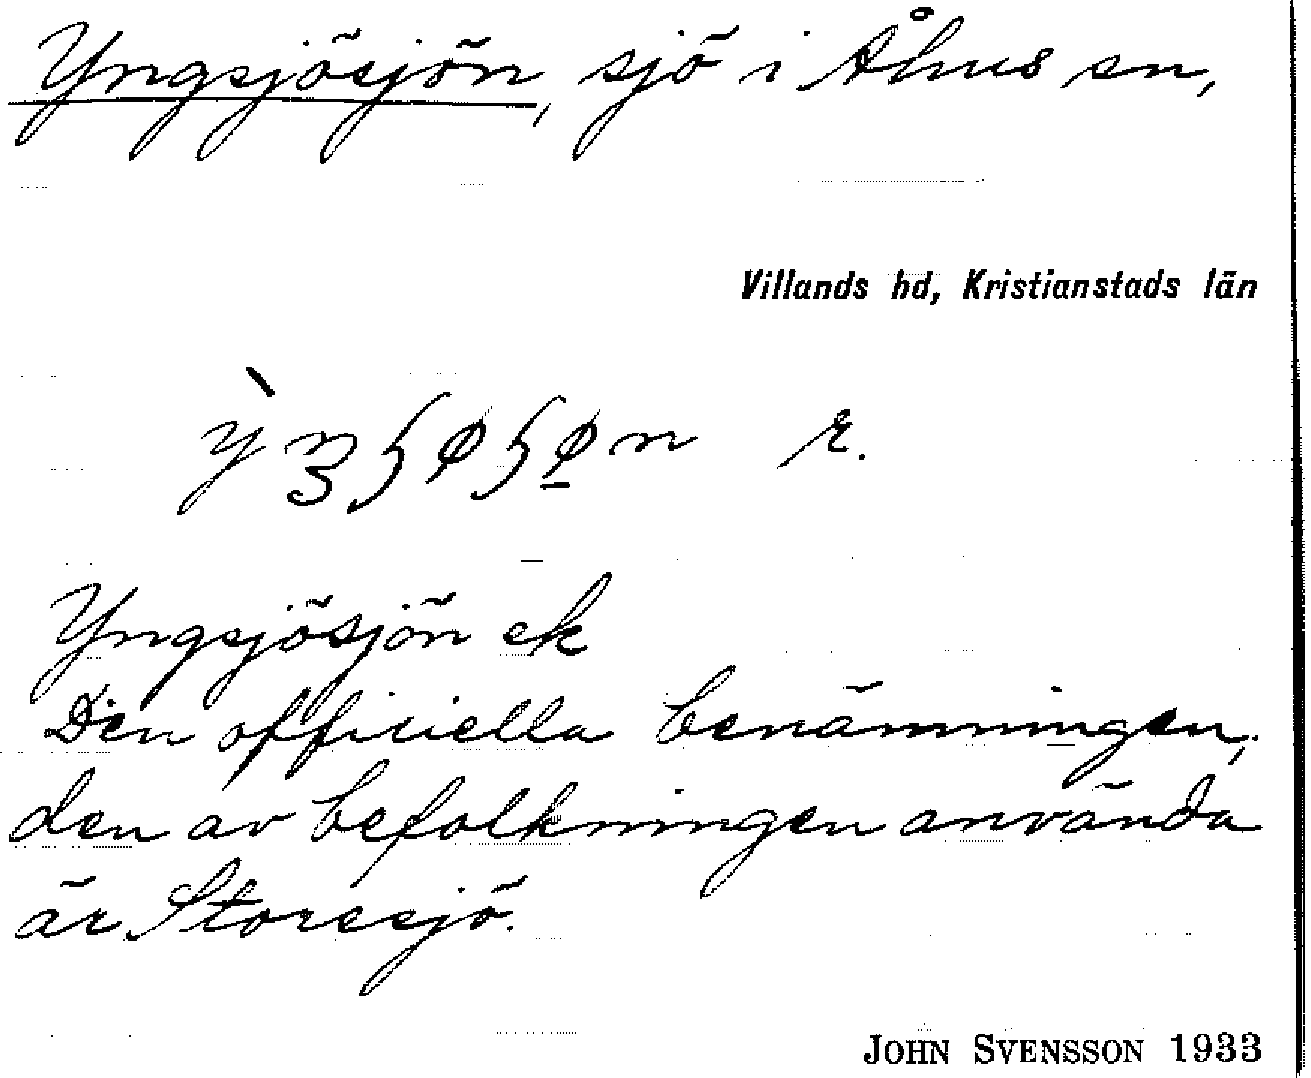 Yngsjösjön, sjö i Åhus sn,
Villands hd, Kristianstads län
r.
Yngsjösjön ek
Den officiella benämningen;
den av befolkningen använda
är Storesjö.
JOHN SVENSSON 1933